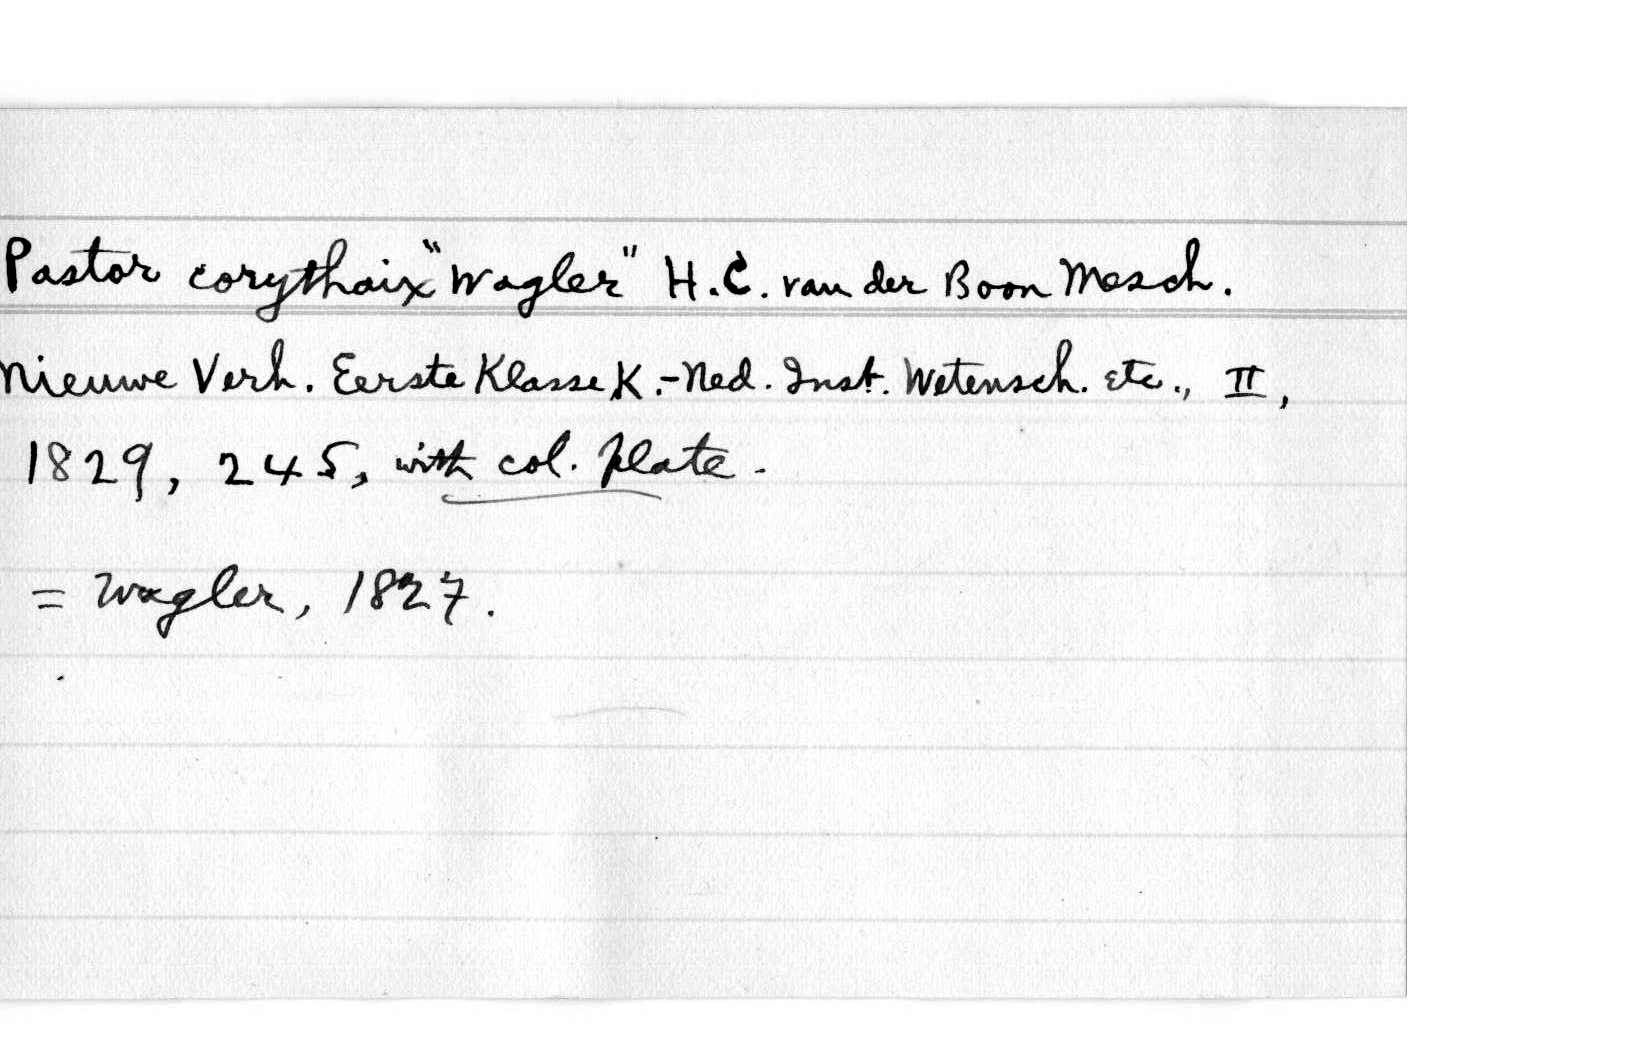 Pastor corythaix "Wagler" H.C. van der Boon Mesch.
Nieuwe Verh. Eerste Klasse K.-Ned. Inst. Wetensch. etc., II,
1829, 245, with col. plate.
= Wagler, 1827.